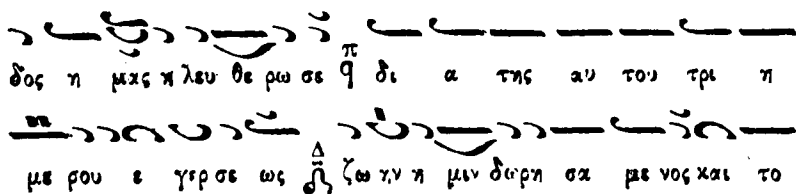 δος η μας η λευ θε ρω σε π q δι α της αυ του τρι η
με ρου ε γερ σε ως Δ ζω ην η μιν δωρη σα με νος και το